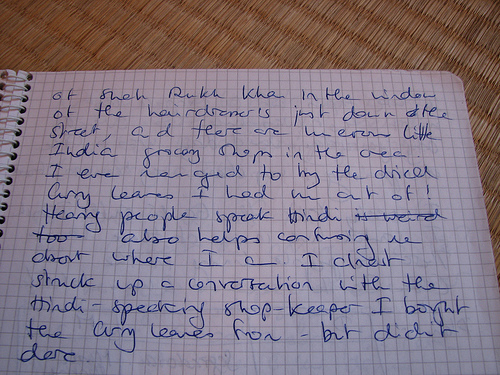 of Shah Rukh Khan in the window
of the hairdresser's just down the
street, and there are numerous little
India grocery shops in the area.
I even managed to buy the dried
Curry leaves I had run out of!
Hearing people speak Hindi is weird
too also helps confusing me
about where I am. I almost
struck up a conversation with the
Hindi-speaking shop-keeper I bought
the curry leaves from - but didn't
dare.